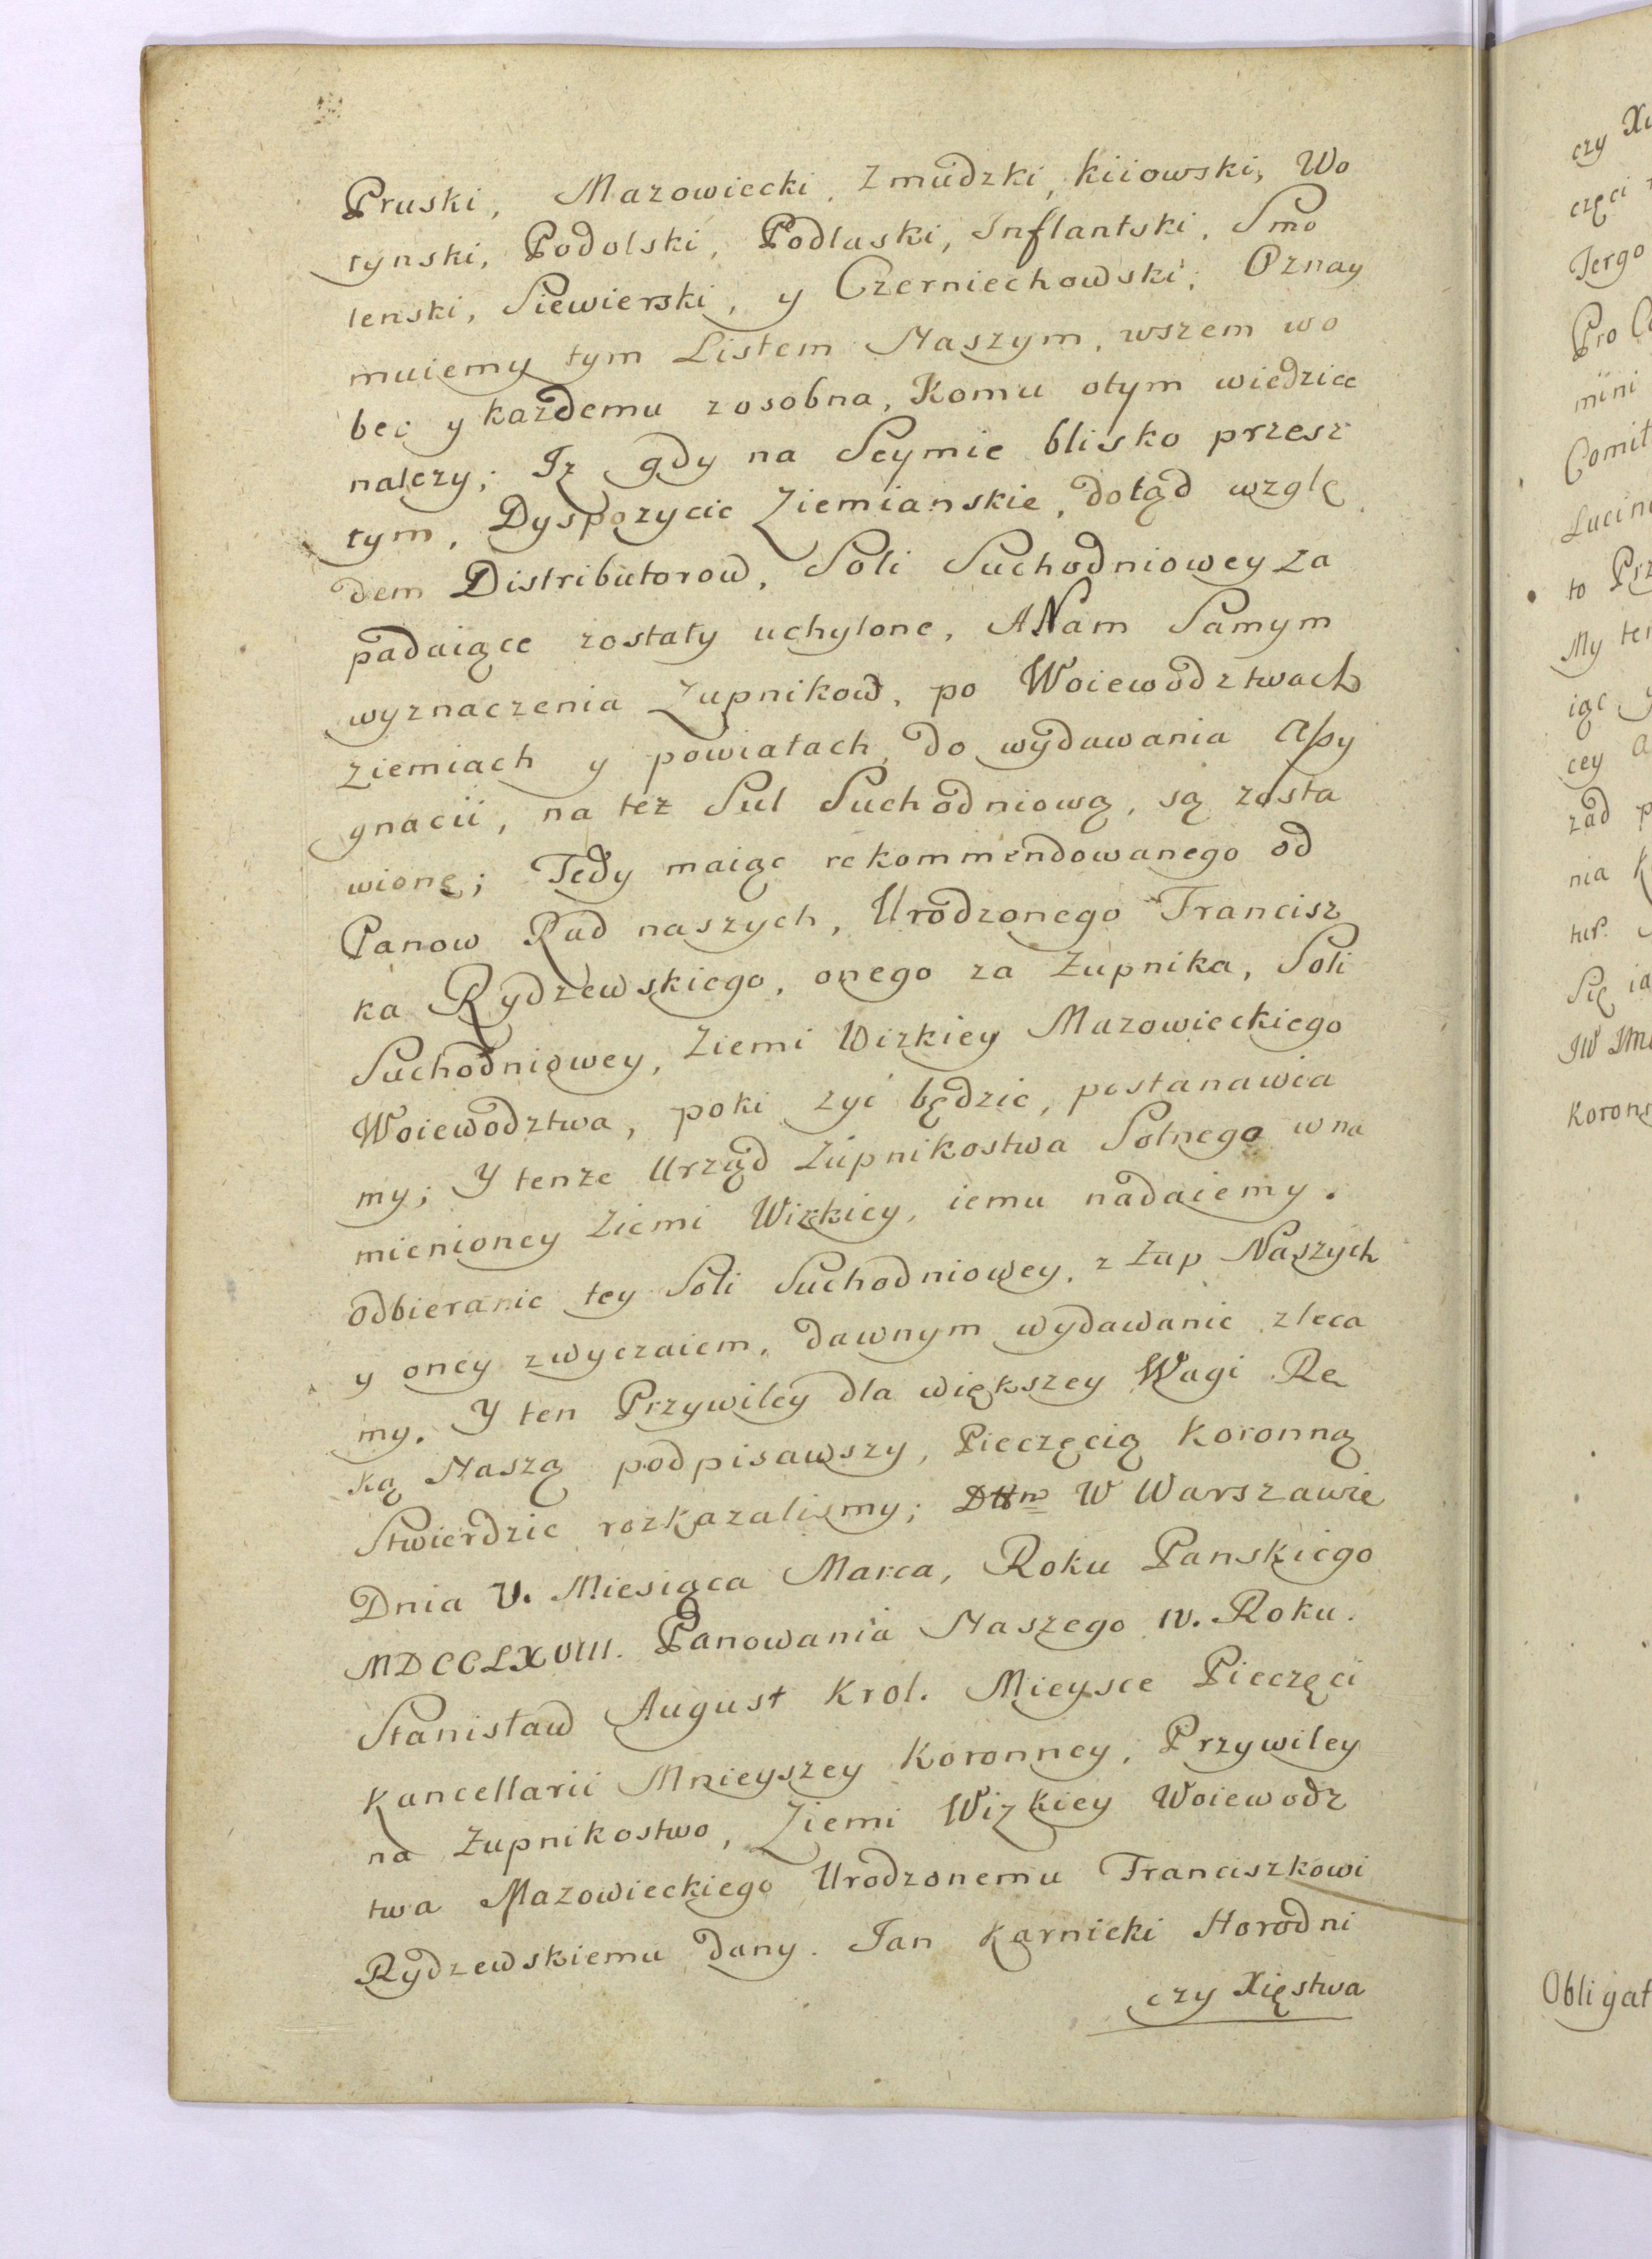 Pruski, Mazowiecki, Zmudzki, kiiowski, Wo
łynski, Podolski, Podlaski, Inflantski, Smo
lenski, Siewierski, y Czerniechowski; Oznay
muiemy tym Listem Naszym, wszem wo
bec y każdemu zosobna, Komu otym wiedziec
nalezy; Iz gdy na Seymie blisko przesz
łym, Dyspozycie Ziemianskie, dotąd wzglę
dem Distributorow, Soli Suchodniowey za
padaiące zostały uchylone, A Nam Samym
wyznaczenia Zupnikow, po Woiewodztwach
ziemiach y powiatach, do wydawania Assy
gnacii, na tez Sul Suchodniową, są zosta
wione; Tedy maiąc rekommendowanego od
Panow Rad naszych, Urodzonego Francisz
ka Rydzewskiego, onego za Żupnika, Soli
Suchodniowey, Ziemi Wizkiey Mazowieckiego
Woiewodztwa, poki zyć będzie, postanawia
my; Y tenze Urząd Zupnikostwa Solnego w na
mienioney Ziemi Wizkiey, iemu nadaiemy.
odbieranie tey Soli Suchodniowey, z Zup Naszych
y oney zwyczaiem, dawnym wydawanie zleca
my. Y ten Przywiley dla większey Wagi Rę
ką Naszą podpisawszy, Pieczęcią Koronną
Stwierdzic rozkazalismy; Dttm W Warszawie
Dnia V. Miesiąca Marca, Roku Panskiego
MDCCLXVIII. Panowania Naszego IV. Roku.
Stanisław August Krol. Mieysce Pieczęci
Kancellarii Mnieyszey Koronney, Przywiley
na Zupnikostwo, Ziemi Wizkiey Woiewodz
twa Mazowieckiego Urodzonemu Franciszkowi
Rydzewskiemu dany. Jan Karnicki Horodni
czy Xięstwa
czy
częci
Tergo
Pro
mini
Comit
to
My
iąc
cey
rad
nia
Się
JW
Koronn
Obligat